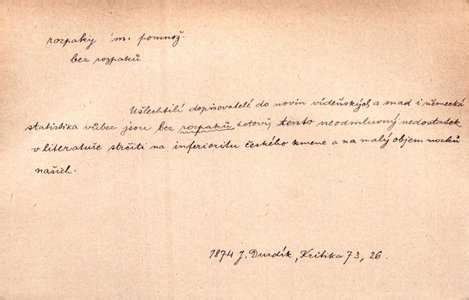 rozpaky m. pomnož.
bez rozpaků
Ušlechtilí dopisovatelé do novin vídeňských a snad i německá
statistika vůbec jsou bez rozpaků hotovi, tento neodmluvný nedostatek
v literatuře strčiti na inferioritu českého kmene a na malý objem mozků
našich.
1874 J. Durdík, Kritika 73, 26.